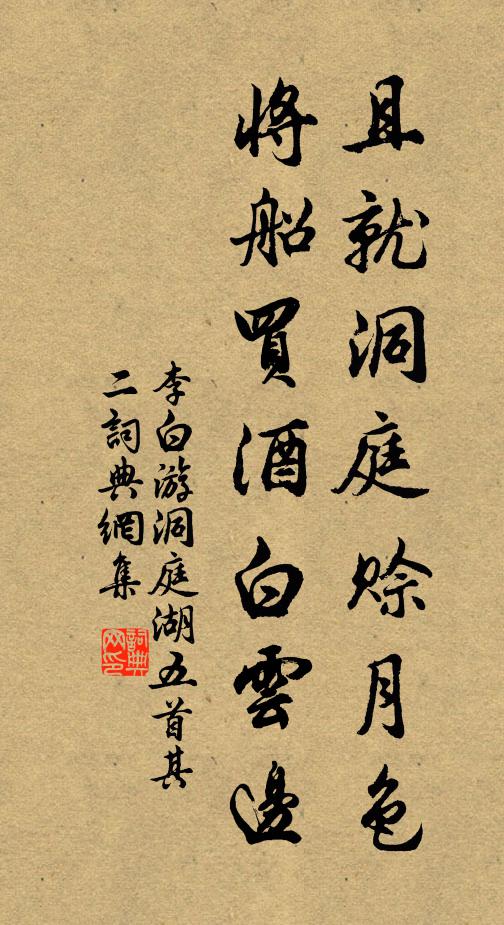 且就洞庭賒月色
將船買酒白雲邊
李白游洞庭湖五首其
二詞典網集
詞典
网印